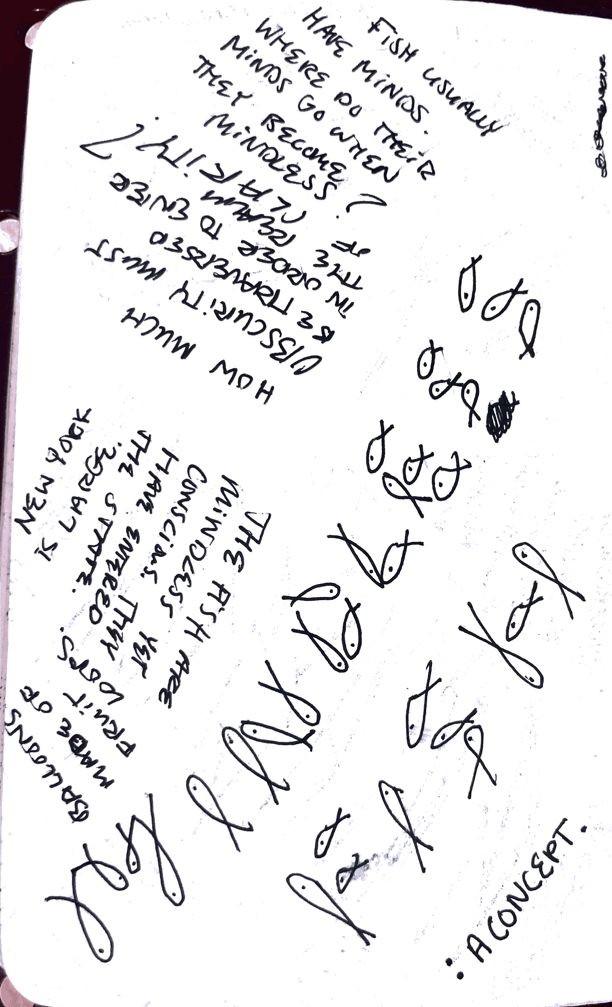 FISH USUALLY
HAVE MINDS.
WHERE DO THEIR
MINDS GO WHEN
THEY BECOME
MINDLESS
?
HOW MUCH
OBSCURITY MUST
BE TRAVERSED
IN ORDER TO ENTER
THE REALM
OF CLARITY?
THE FISH ARE
MINDLESS YET
CONSCIOUS. THEY
HAVE ENTERED
THE STATE.
NEW YORK
IS LARGE.
BALLOONS
MADE OF
FRUIT LOOPS.
: A CONCEPT.